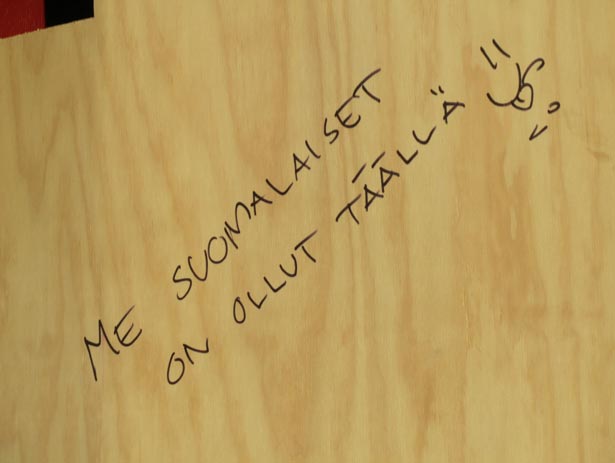 ME SUOMALAISET
ON OLLUT TÄÄLLÄ